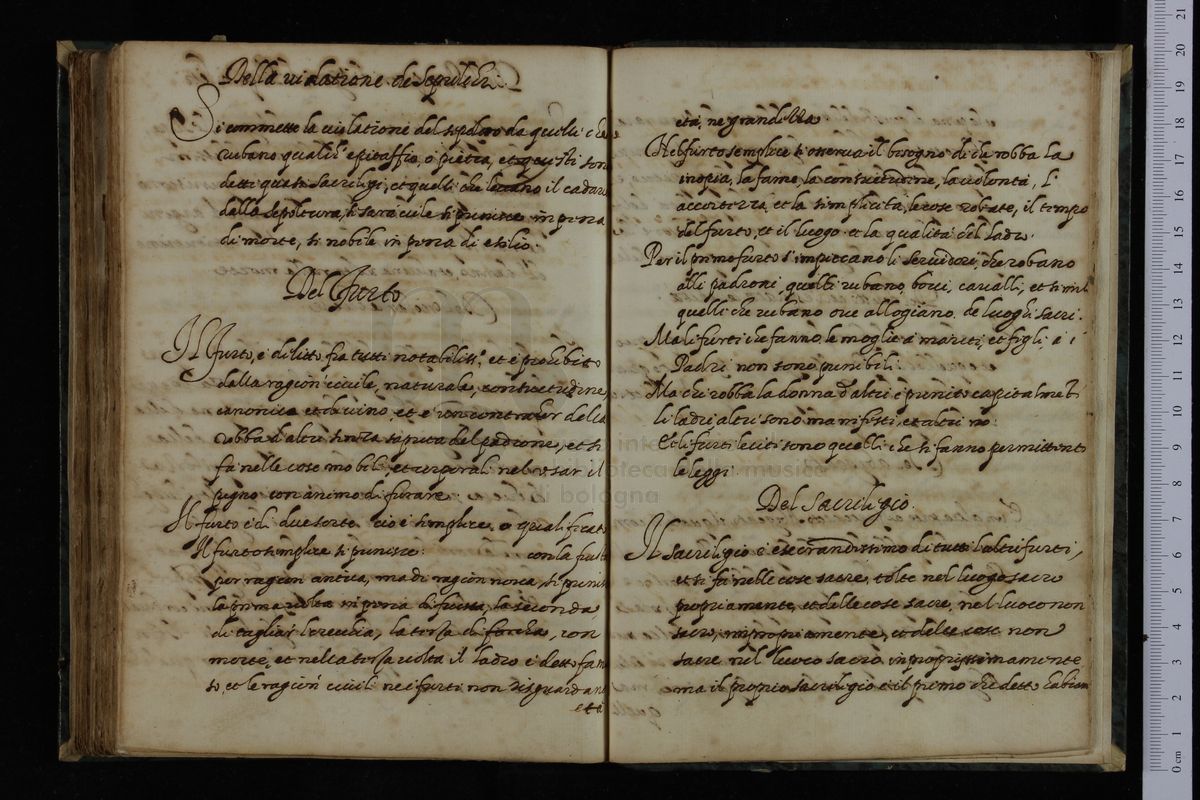 Della violatione de Sepulchri.
Si commette la violatione del sepolcro da quelli che
rubano qualche epitaffio, o pietra, et questi son
detti quasi sacrilegi, et quelli che levano il cadav
dalla sepoltura, si sara vile si punisce in pena
di morte, si nobile in pena di esilio.
Del Furto
Il furto, è delitto fra tutti notabiliss.o et è prohibito
dalla ragion civile, naturale, consuetudine,
canonica et divino, et è un contratar della
robba d'altri senza saputa del padrone, et si
fa nelle cose mobili et corporali nel usar il
pegno con animo di furare.
Il furto è di due sorte cio è semplice, o qualificato
Il furto semplice si punisce con la fust
per ragion antica, ma di ragion nova, si punis
la prima volta in pena di frusta, la seconda,
di tagliar l'orecchia, la terza di forcha, con
morte, et nella terza volta il ladro è detto fam
so, et le ragion civili ne i furti non risguardano
età
età, ne grandezza
Nel furto semplice si osserva il bisogno di che robba la
inopia, la fame, la consuetudine, la volontà, l'
accortezza, et la simplicità, le cose robate, il tempo
del furto, et il luogo et la qualità del ladro.
Per il primo furto s'impiccano li servitori, che robano
alli padroni, quelli rubano bovi, cavalli, et simil
quelli che rubano ove allogiano, de luoghi sacri.
Ma li furti che fanno le moglie a mariti, et figli à i
Padri non sono punibili.
Ma chi robba la donna d'altri è punito capitalmet.
li ladri altri sono manifesti, et altri nò.
Et li furti leciti sono quelli che si fanno permittenti
le leggi.
Del Sacrilegio.
Il sacrilegio è esecrandissimo di tutti l'altri furti,
et si fà nelle cose sacre, tolte nel luogo sacro
propriamente, et dalle cose sacre, nel luoco non
sacro, impropriamente, et delle cose non
sacre nel luoco sacro, inpropriissimamente,
ma il proprio sacrilegio è il primo che detto habiam